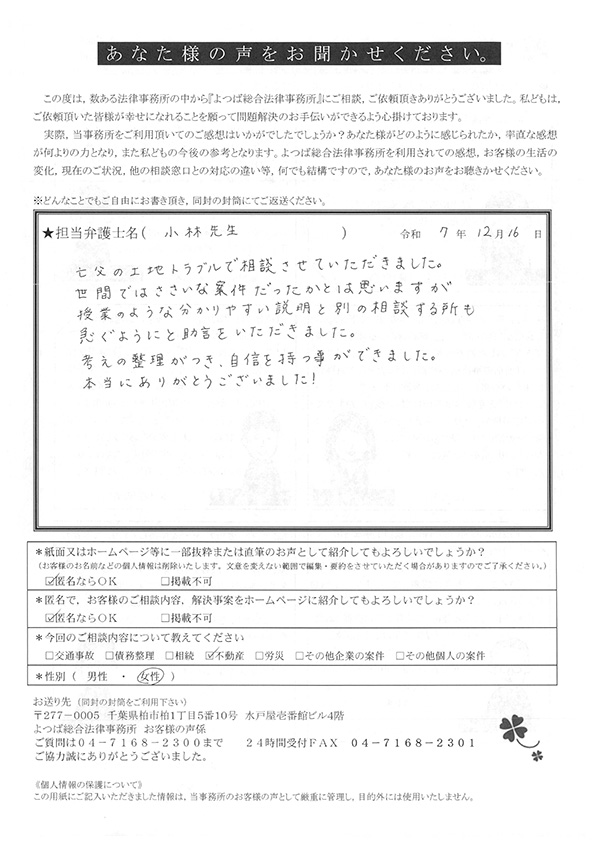 あなた様の声をお聞かせください。
この度は，数ある法律事務所の中から『よつば総合法律事務所』にご相談，ご依頼頂きありがとうございました。私どもは，
ご依頼頂いた皆様が幸せになれることを願って問題解決のお手伝いができるよう心掛けております。
実際，当事務所をご利用頂いてのご感想はいかがでしたでしょうか？あなた様がどのように感じられたか，率直な感想
が何よりの力となり，また私どもの今後の参考となります。よつば総合法律事務所を利用されての感想，お客様の生活の
変化，現在のご状況，他の相談窓口との対応の違い等，何でも結構ですので，あなた様のお声をお聴きかせください。
※どんなことでもご自由にお書き頂き，同封の封筒にてご返送ください。
★担当弁護士名（ 小林先生 ） 令和 7 年 12 月 16 日
亡父の土地トラブルで相談させていただきました。
世間ではささいな案件だったかとは思いますが
授業のような分かりやすい説明と別の相談する所も
急ぐようにと助言をいただきました。
考えの整理がつき、自信を持つ事ができました。
本当にありがとうございました!
＊紙面又はホームページ等に一部抜粋または直筆のお声として紹介してもよろしいでしょうか？
（お客様のお名前などの個人情報は削除いたします。文意を変えない範囲で編集・要約をさせていただく場合がありますのでご了承ください。）
☑匿名ならＯＫ □掲載不可
＊匿名で，お客様のご相談内容，解決事案をホームページに紹介してもよろしいでしょうか？
☑匿名ならＯＫ □掲載不可
＊今回のご相談内容について教えてください
□交通事故 □債務整理 □相続 ☑不動産 □労災 □その他企業の案件 □その他個人の案件
＊性別（ 男性 ・ 女性 ）
お送り先（同封の封筒をご利用下さい）
〒277－0005 千葉県柏市柏1丁目5番10号 水戸屋壱番館ビル4階
よつば総合法律事務所 お客様の声係
ご質問は０４－７１６８－２３００まで ２４時間受付ＦＡＸ ０４－７１６８－２３０１
ご協力誠にありがとうございました。
《個人情報の保護について》
この用紙にご記入いただきました情報は，当事務所のお客様の声として厳重に管理し，目的外には使用いたしません。